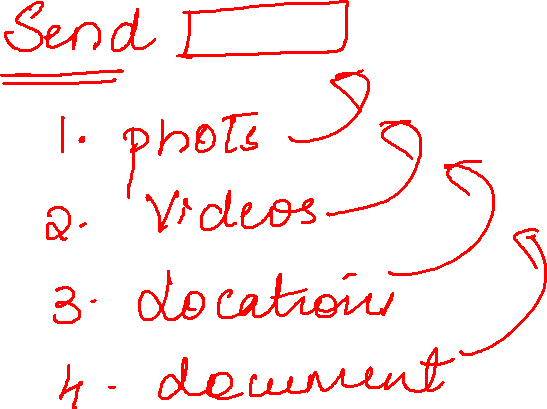 Send
1. phots
2. Videos
3. Location
4. document